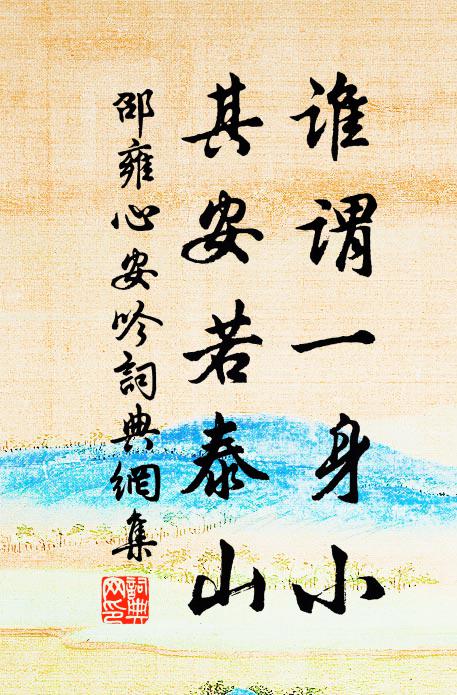 誰謂一身小
其安若泰山
邵雍心安吟詞典網集
詞典網印